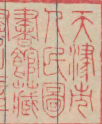 天津市
人民圖
書館藏